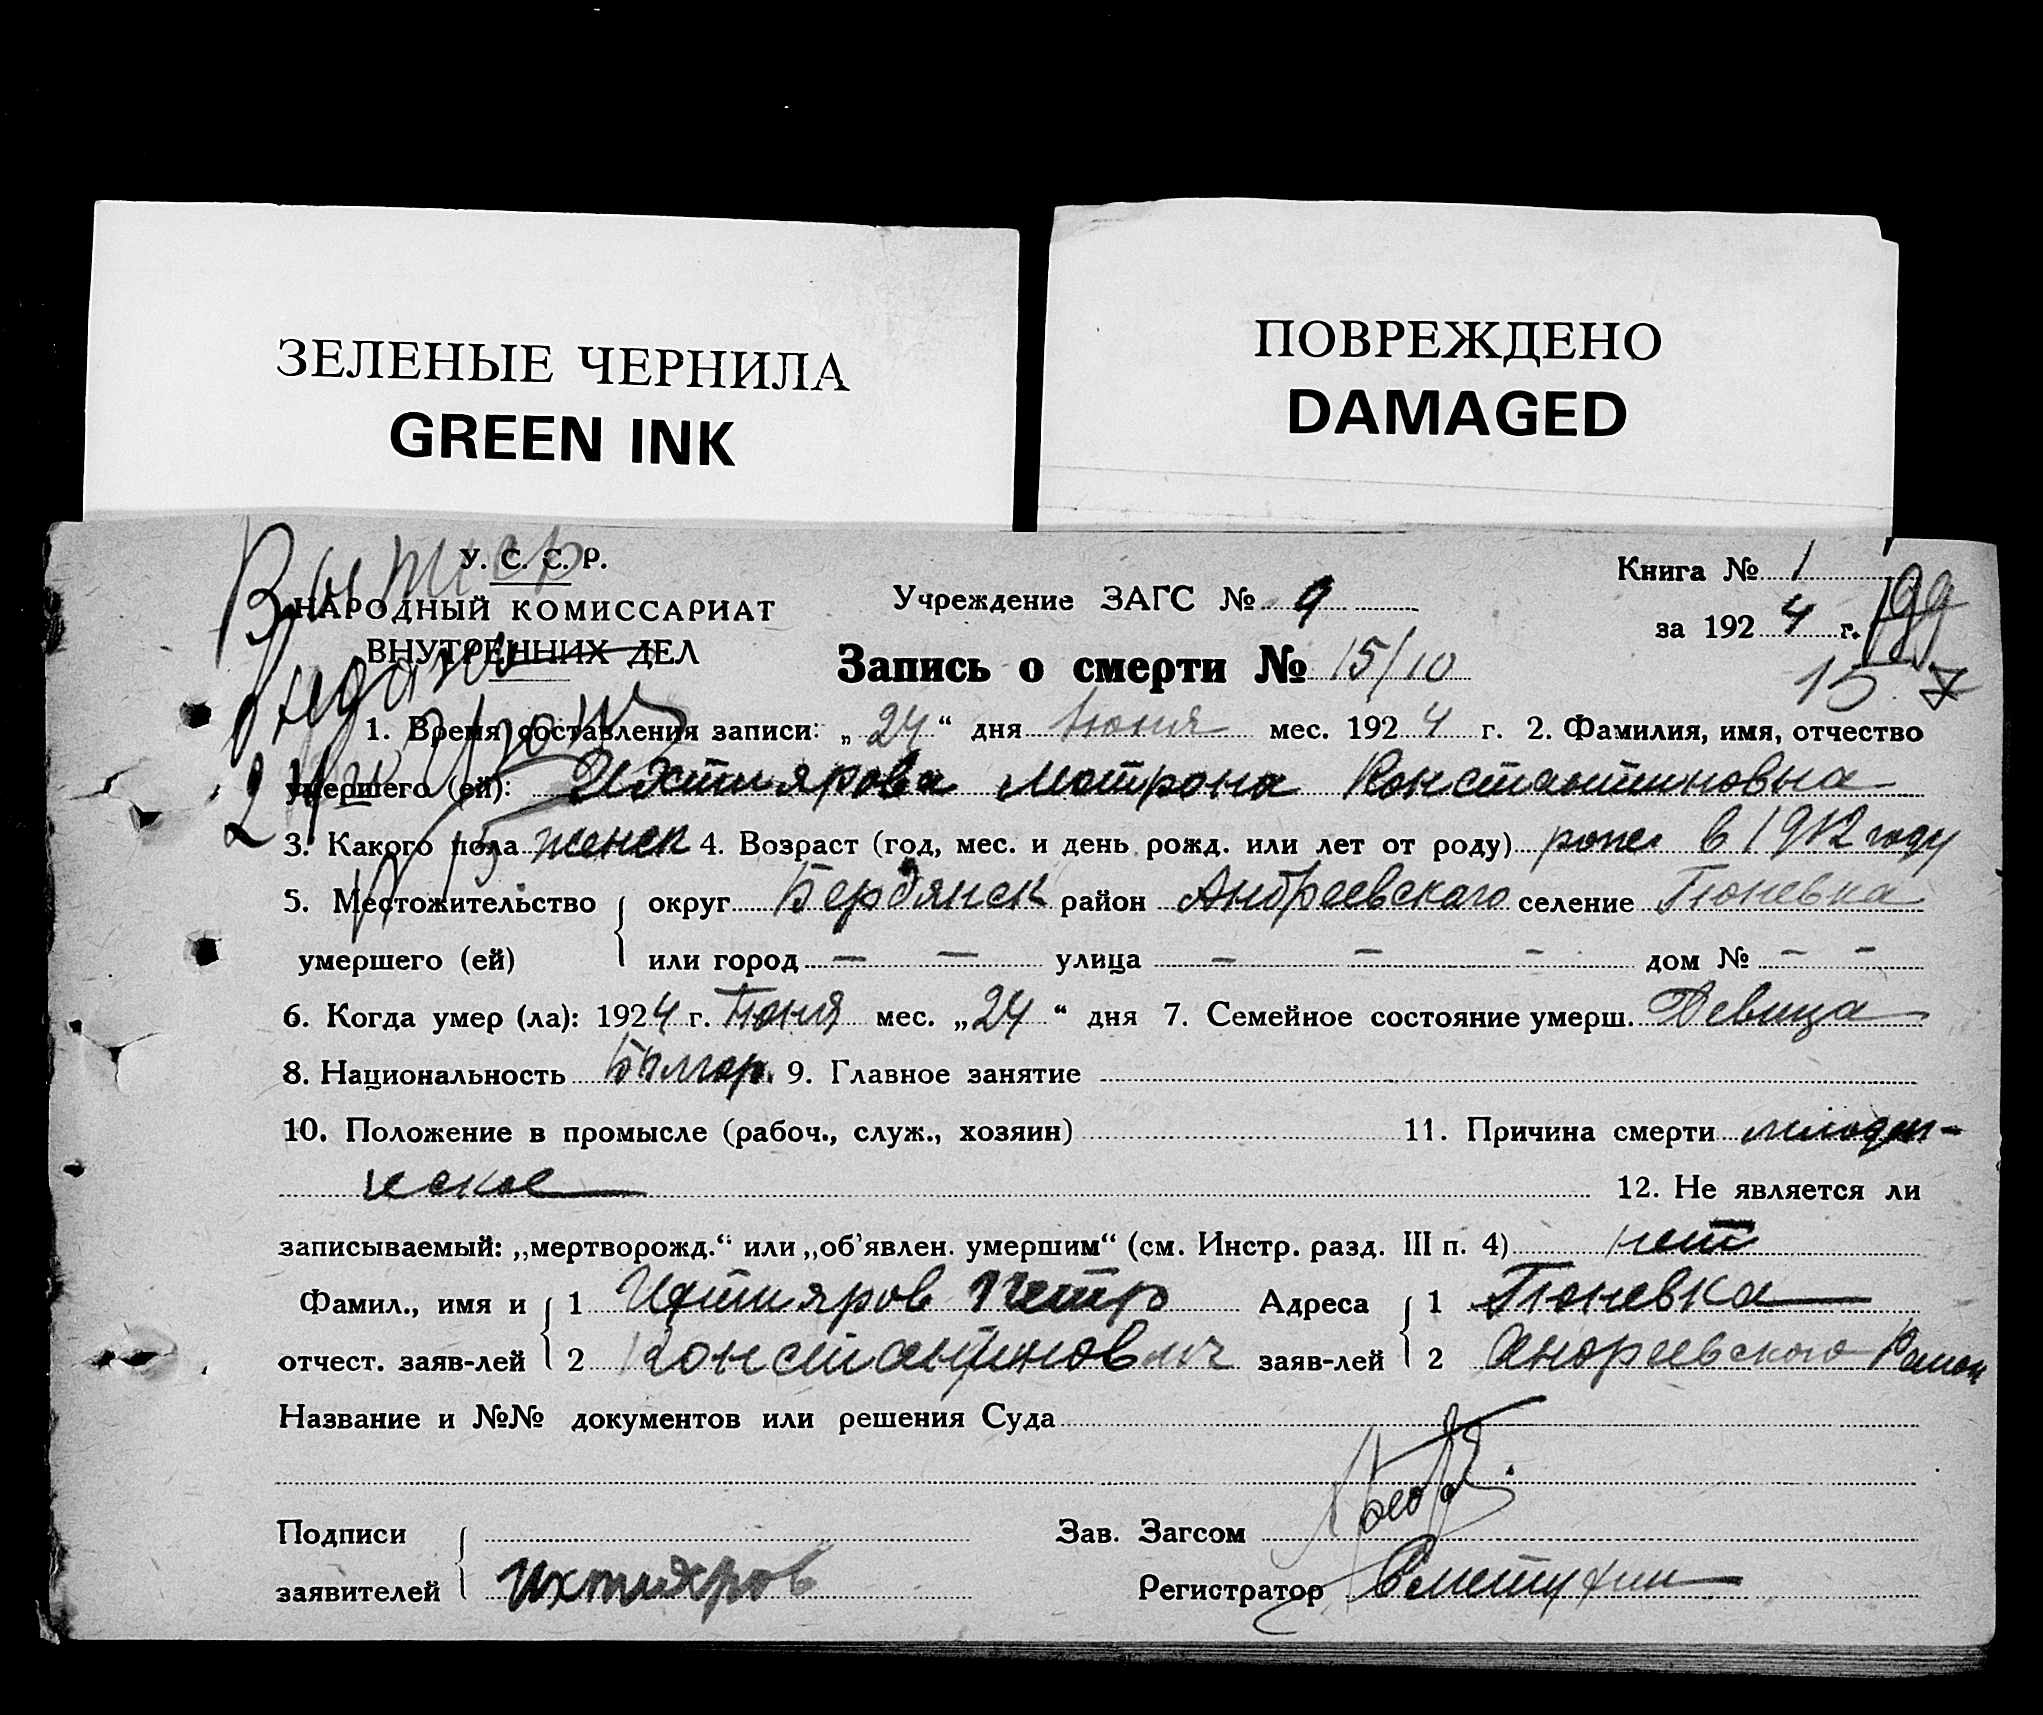 ЗЕЛЕНЫЕ ЧЕРНИЛА
GREEN INK
ПОВРЕЖДЕНО
DAMAGED
У. С. С. Р.
НАРОДНЫЙ КОМИССАРИАТ
ВНУТРЕННИХ ДЕЛ
Учреждение ЗАГС № 9
Запись о смерти № 15/10
Книга № 1
за 1924 г. 199
15
1. Время составления записи: „24“ дня Июня мес. 1924 г. 2. Фамилия, имя, отчество
умершего (ей): Ихтиярова Матрона Константиновна
3. Какого пола женск 4. Возраст (год, мес. и день рожд. или лет от роду) в 1912 году
5. Местожительство умершего (ей) округ Бердянск район Андреевскаго селение Тюневка
или город — — улица — — - дом № - -
6. Когда умер (ла): 1924 г. Июня мес. „24“ дня 7. Семейное состояние умерш. Девица
8. Национальность Болгар. 9. Главное занятие
10. Положение в промысле (рабоч., служ., хозяин) 11. Причина смерти
12. Не является ли
записываемый: „мертворожд.“ или „об'явлен. умершим“ (см. Инстр. разд. III п. 4) нет
Фамил., имя и отчест. заяв-лей 1 Ихтияров Петр Адреса заяв-лей 1 Тюневка
2 Константинович 2 Андреевского Район
Название и №№ документов или решения Суда
Подписи заявителей Ихтияров
Зав. Загсом
Регистратор